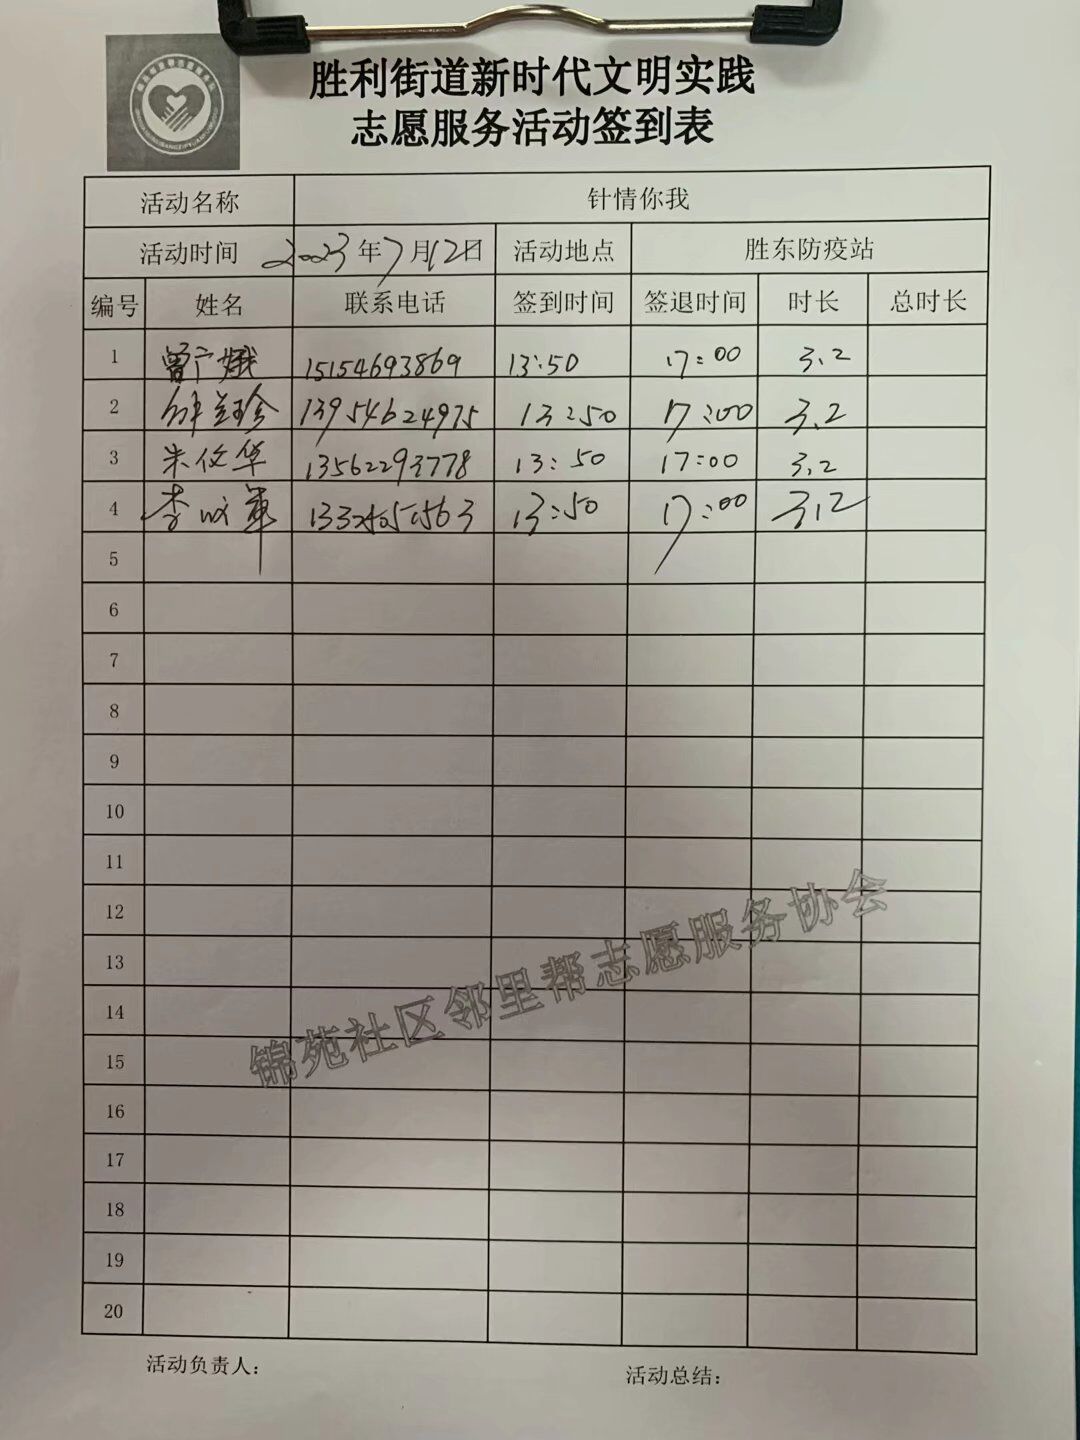 胜利街道新时代文明实践
志愿服务活动签到表
活动名称 针情你我
活动时间 2023年7月12日 活动地点 胜东防疫站
编号 姓名 联系电话 签到时间 签退时间 时长 总时长
1 曾广娥 15154693869 13:50 17:00 3.2
2 兰珍 13954624975 13:50 17:00 3.2
3 朱仪华 13562293778 13:50 17:00 3.2
4 李 军 13:50 17:00 3.2
5
6
7
8
9
10
11
12
13
14
15
16
17
18
19
20
锦苑社区邻里帮志愿服务协会
活动负责人: 活动总结: